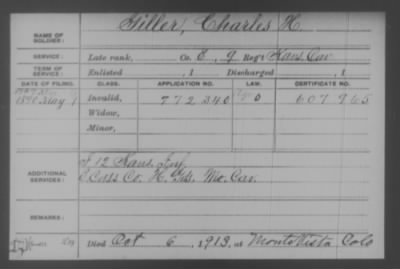 NAME OF SOLDIER: Giller, Charles H.
SERVICE: Late rank, Co. E, 9 Reg't Kans Cav
TERM OF SERVICE: Enlisted , 1 Discharged , 1
DATE OF FILING. CLASS. APPLICATION NO. LAW. CERTIFICATE NO.
1890 May 7 Invalid, 772 340 607 965
Widow,
Minor,
ADDITIONAL SERVICES: F. 12 Kans. Inf.
Cass Co. H. Gds. Mo. Cav.
REMARKS:
Died Oct 6, 1913, at Monte Vista Colo